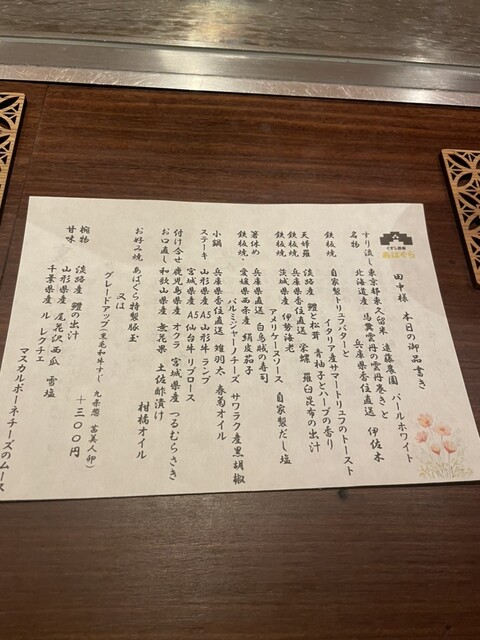 くずし鉄板
あばぐら
田中様 本日の御品書き
すり流し 東京都東久留米 遠藤農園 パールホワイト
名物 北海道産 馬糞雲丹の雲丹巻きと 兵庫県香住直送 伊佐木
鉄板焼、自家製トリュフバターと
イタリア産サマートリュフのトースト
鉄板焼 淡路産 鱧と松茸 青柚子とハーブの香り
天婦羅 兵庫県香住直送 栄螺 羅臼昆布の出汁
鉄板焼 茨城県産 伊勢海老
アメリケーヌソース 自家製だし塩
箸休め 兵庫県直送 白烏賊の寿司
鉄板焼、愛媛県西条産 絹皮茄子
パルミジャーノチーズ サワラク産黒胡椒
小鍋 兵庫県香住直送 螧羽太 春菊オイル
ステーキ 山形県産 A5山形牛 ランプ
宮城県産 A5仙台牛 リブロース
付け合せ 鹿児島県産 オクラ 宮城県産 つるむらさき
お口直し 和歌山県産 無花果 土佐酢漬け
柑橘オイル
お好み焼 あばぐら特製豚玉
又は
グレードアップ(黒毛和牛すじ 九条葱 蓮美人卵)
+三〇〇円
椀物 淡路産 鱧の出汁
甘味 山形県産 尾花沢西瓜 雪塩
千葉県産 ル レクチェ
マスカルポーネチーズのムース